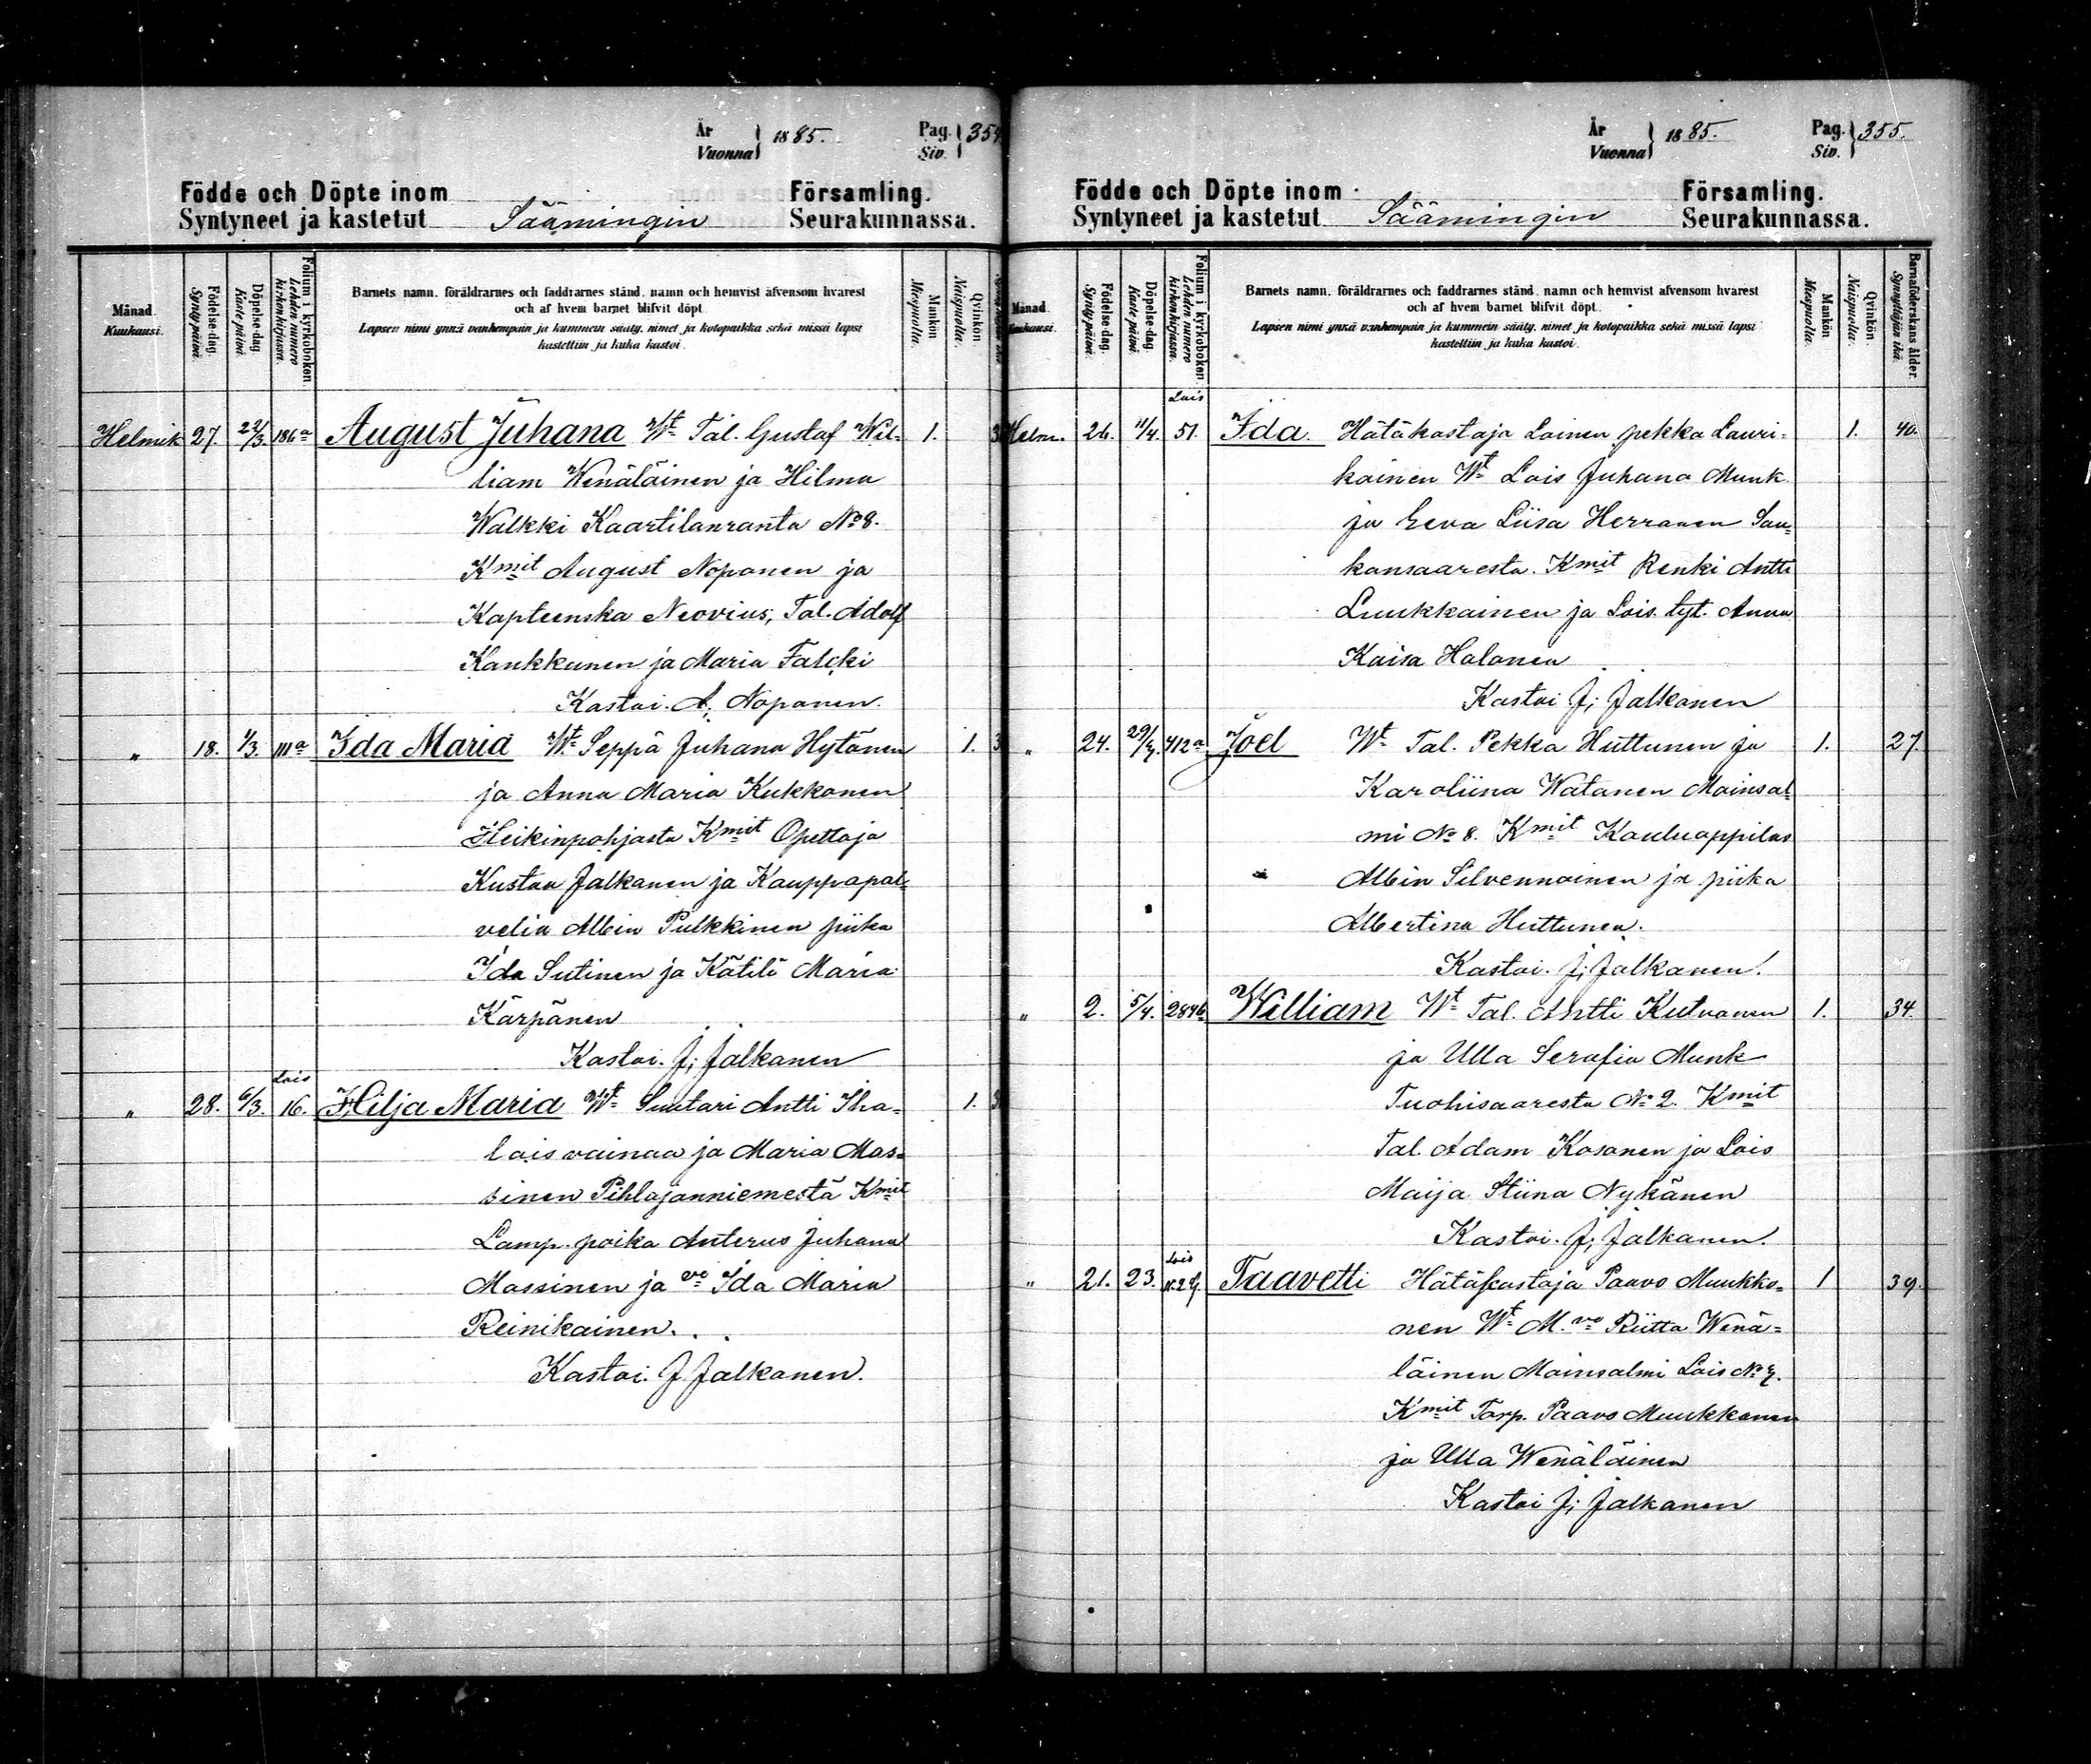 År
Vuonna } 1885.
Pag.
Siv. } 354
Födde och Döpte inom Församling.
Syntyneet ja kastetut Säämingin Seurakunnassa.
Månad. Kuukausi.
Födelse-dag. Syntypäivä.
Döpelse-dag Kastepäivä.
Folium i kyrkoboken. Lehden numero kirkonkirjassa.
Barnets namn, föräldrarnes och faddrarnes stånd, namn och hemvist äfvensom hvarest
och af hvem barnet blifvit döpt.
Lapsen nimi ynnä vanhempain ja kummein sääty, nimet ja kotopaikka sekä missä lapsi
kastettiin ja kuka kastoi.
Mankön Miespuolia.
Qvinkön Naispuolia.
Helmik 27. 22/3. 186a August Juhana Wt Tal. Gustaf Wil- 1. 3
liam Wenäläinen ja Hilma
Walkki Kaartilanranta No 8.
Kmit August Noponen ja
Kapteenska Neovius, Tal. Adolf
Kankkunen ja Maria Falcki
Kastoi. A; Noponen.
" 18. 1/3. 111a Ida Maria Wt Seppä Juhana Hytönen 1. 3
ja Anna Maria Kukkonen
Heikinpohjasta Kmit Opettaja
Kustaa Jalkanen ja Kauppapal-
velia Albin Pulkkinen piika
Ida Sutinen ja Kätilö Maria
Kärpänen
Kastoi. J; Jalkanen
Lois
" 28. 6/3. 16. Hilja Maria Wt Suutari Antti Iha- 1. 3
lais vainaa ja Maria Mas-
sinen Pihlajanniemestä Kmit
Lamp. poika Anterus Juhana
Massinen ja vo Ida Maria
Reinikainen.
Kastoi. J Jalkanen.
År
Vuonna } 1885.
Pag.
Siv. } 355.
Födde och Döpte inom Församling.
Syntyneet ja kastetut Säämingin Seurakunnassa.
Månad. Kuukausi.
Födelse-dag. Syntypäivä.
Döpelse-dag Kastepäivä.
Folium i kyrkoboken. Lehden numero kirkonkirjassa.
Barnets namn, föräldrarnes och faddrarnes stånd, namn och hemvist äfvensom hvarest
och af hvem barnet blifvit döpt.
Lapsen nimi ynnä vanhempain ja kummein sääty, nimet ja kotopaikka sekä missä lapsi
kastettiin ja kuka kastoi.
Mankön Miespuolia.
Qvinkön Naispuolia.
Barnaföderskans ålder. Synnyttäjän ikä.
Lois
Helm. 26. 11/4. 51. Ida. Hätäkastaja Loinen pekka Lauri- 1. 40.
kainen Wt Lois Juhana Munk
ja Eeva Liisa Herranen Sau-
konsaaresta. Kmit Renki Antti
Luukkainen ja Lois. tyt. Anna
Kaisa Halonen
Kastoi J; Jalkanen
" 24. 412a Joel Wt Tal. Pekka Huttunen ja 1. 27
Karoliina Watanen Moinsal-
mi No 8. Kmit Kouluoppilas
Albin Silvennoinen ja piika
Albertina Huttunen.
Kastoi. J; Jalkanen.
" 2. 5/4. 284b William Wt Tal. Antti Kutvonen 1. 34.
ja Ulla Serafia Munk
Tuohisaaresta No 2. Kmit
Tal. Adam Kosonen ja Lois
Maija Stiina Nykänen
Kastoi. J; Jalkanen.
Lois
" 21. 23. Taavetti Hätäkastaja Paavo Muukko- 1 39.
nen Wt M. vo Riitta Wenä-
läinen Moinsalmi Lois No
Kmit Torp. Paavo Muukkonen
ja Ulla Wenäläinen
Kastoi J; Jalkanen